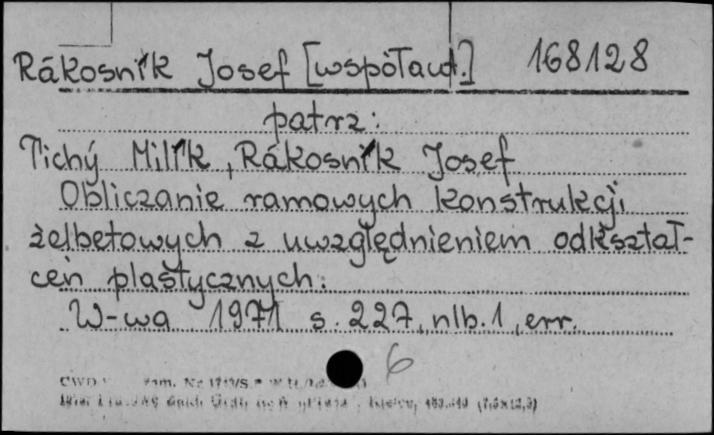 Rákosník Josef [współaut.] 168128
patrz:
Tichý Milík, Rákosník Josef
Obliczanie ramowych konstrukcji
żelbetowych z uwzględnieniem odkształ-
ceń plastycznych.
W-wa 1971 s. 227, nlb. 1, err.
6